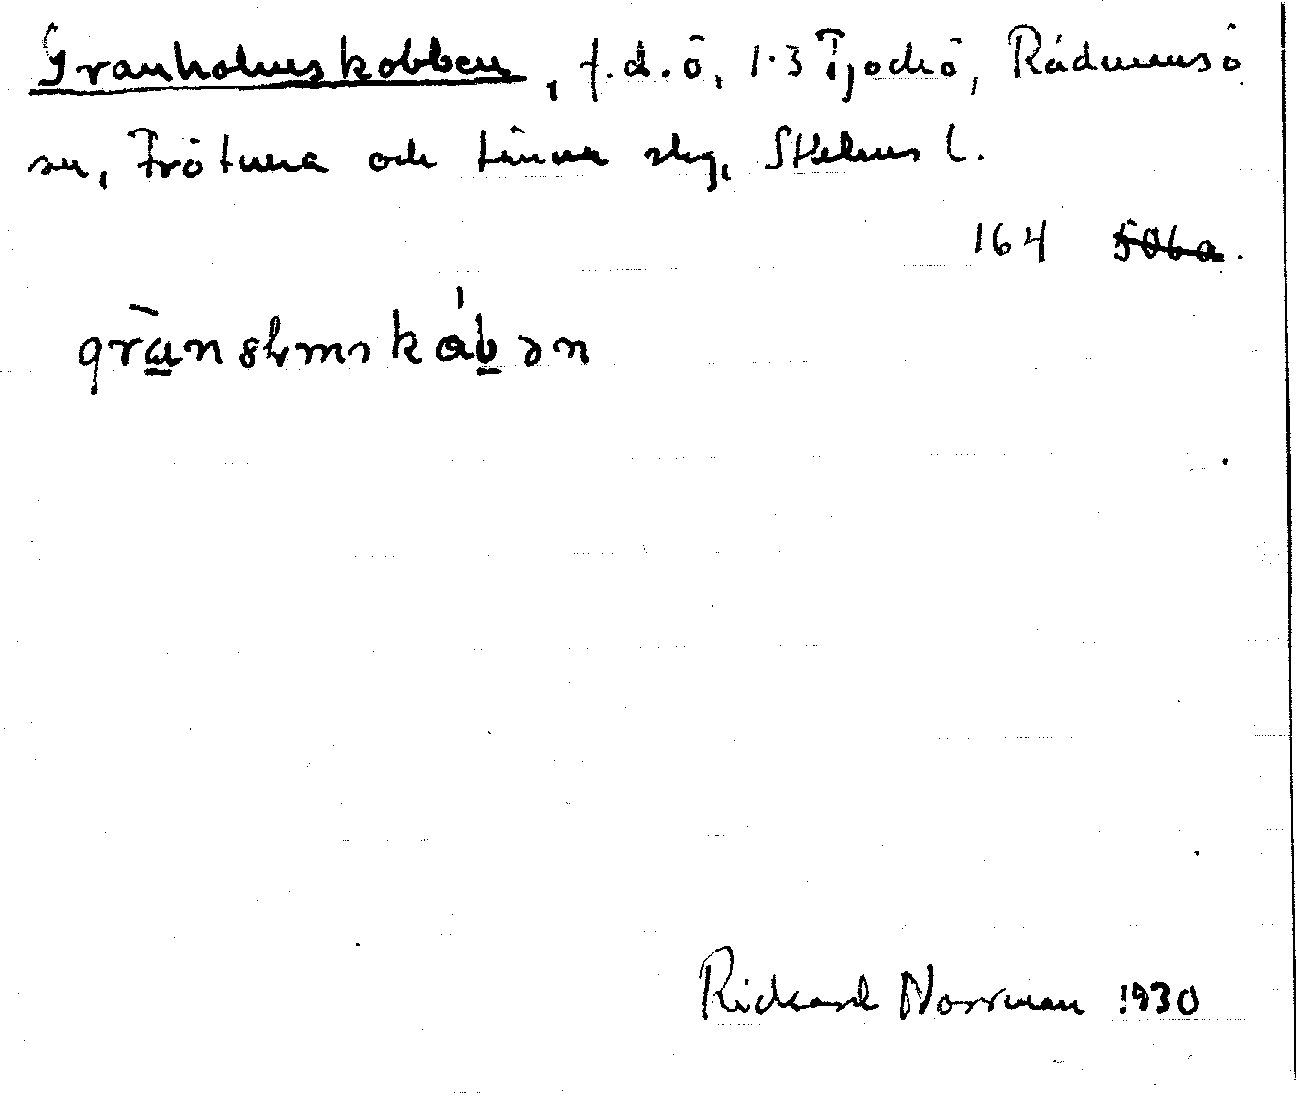 Granholmskobben, f.d. ö, 1.3 Tjockö, Rådmansö
sn, Frötuna och Länna skg, Sthlms l.
164 506a.
Rickard Norrman 1930